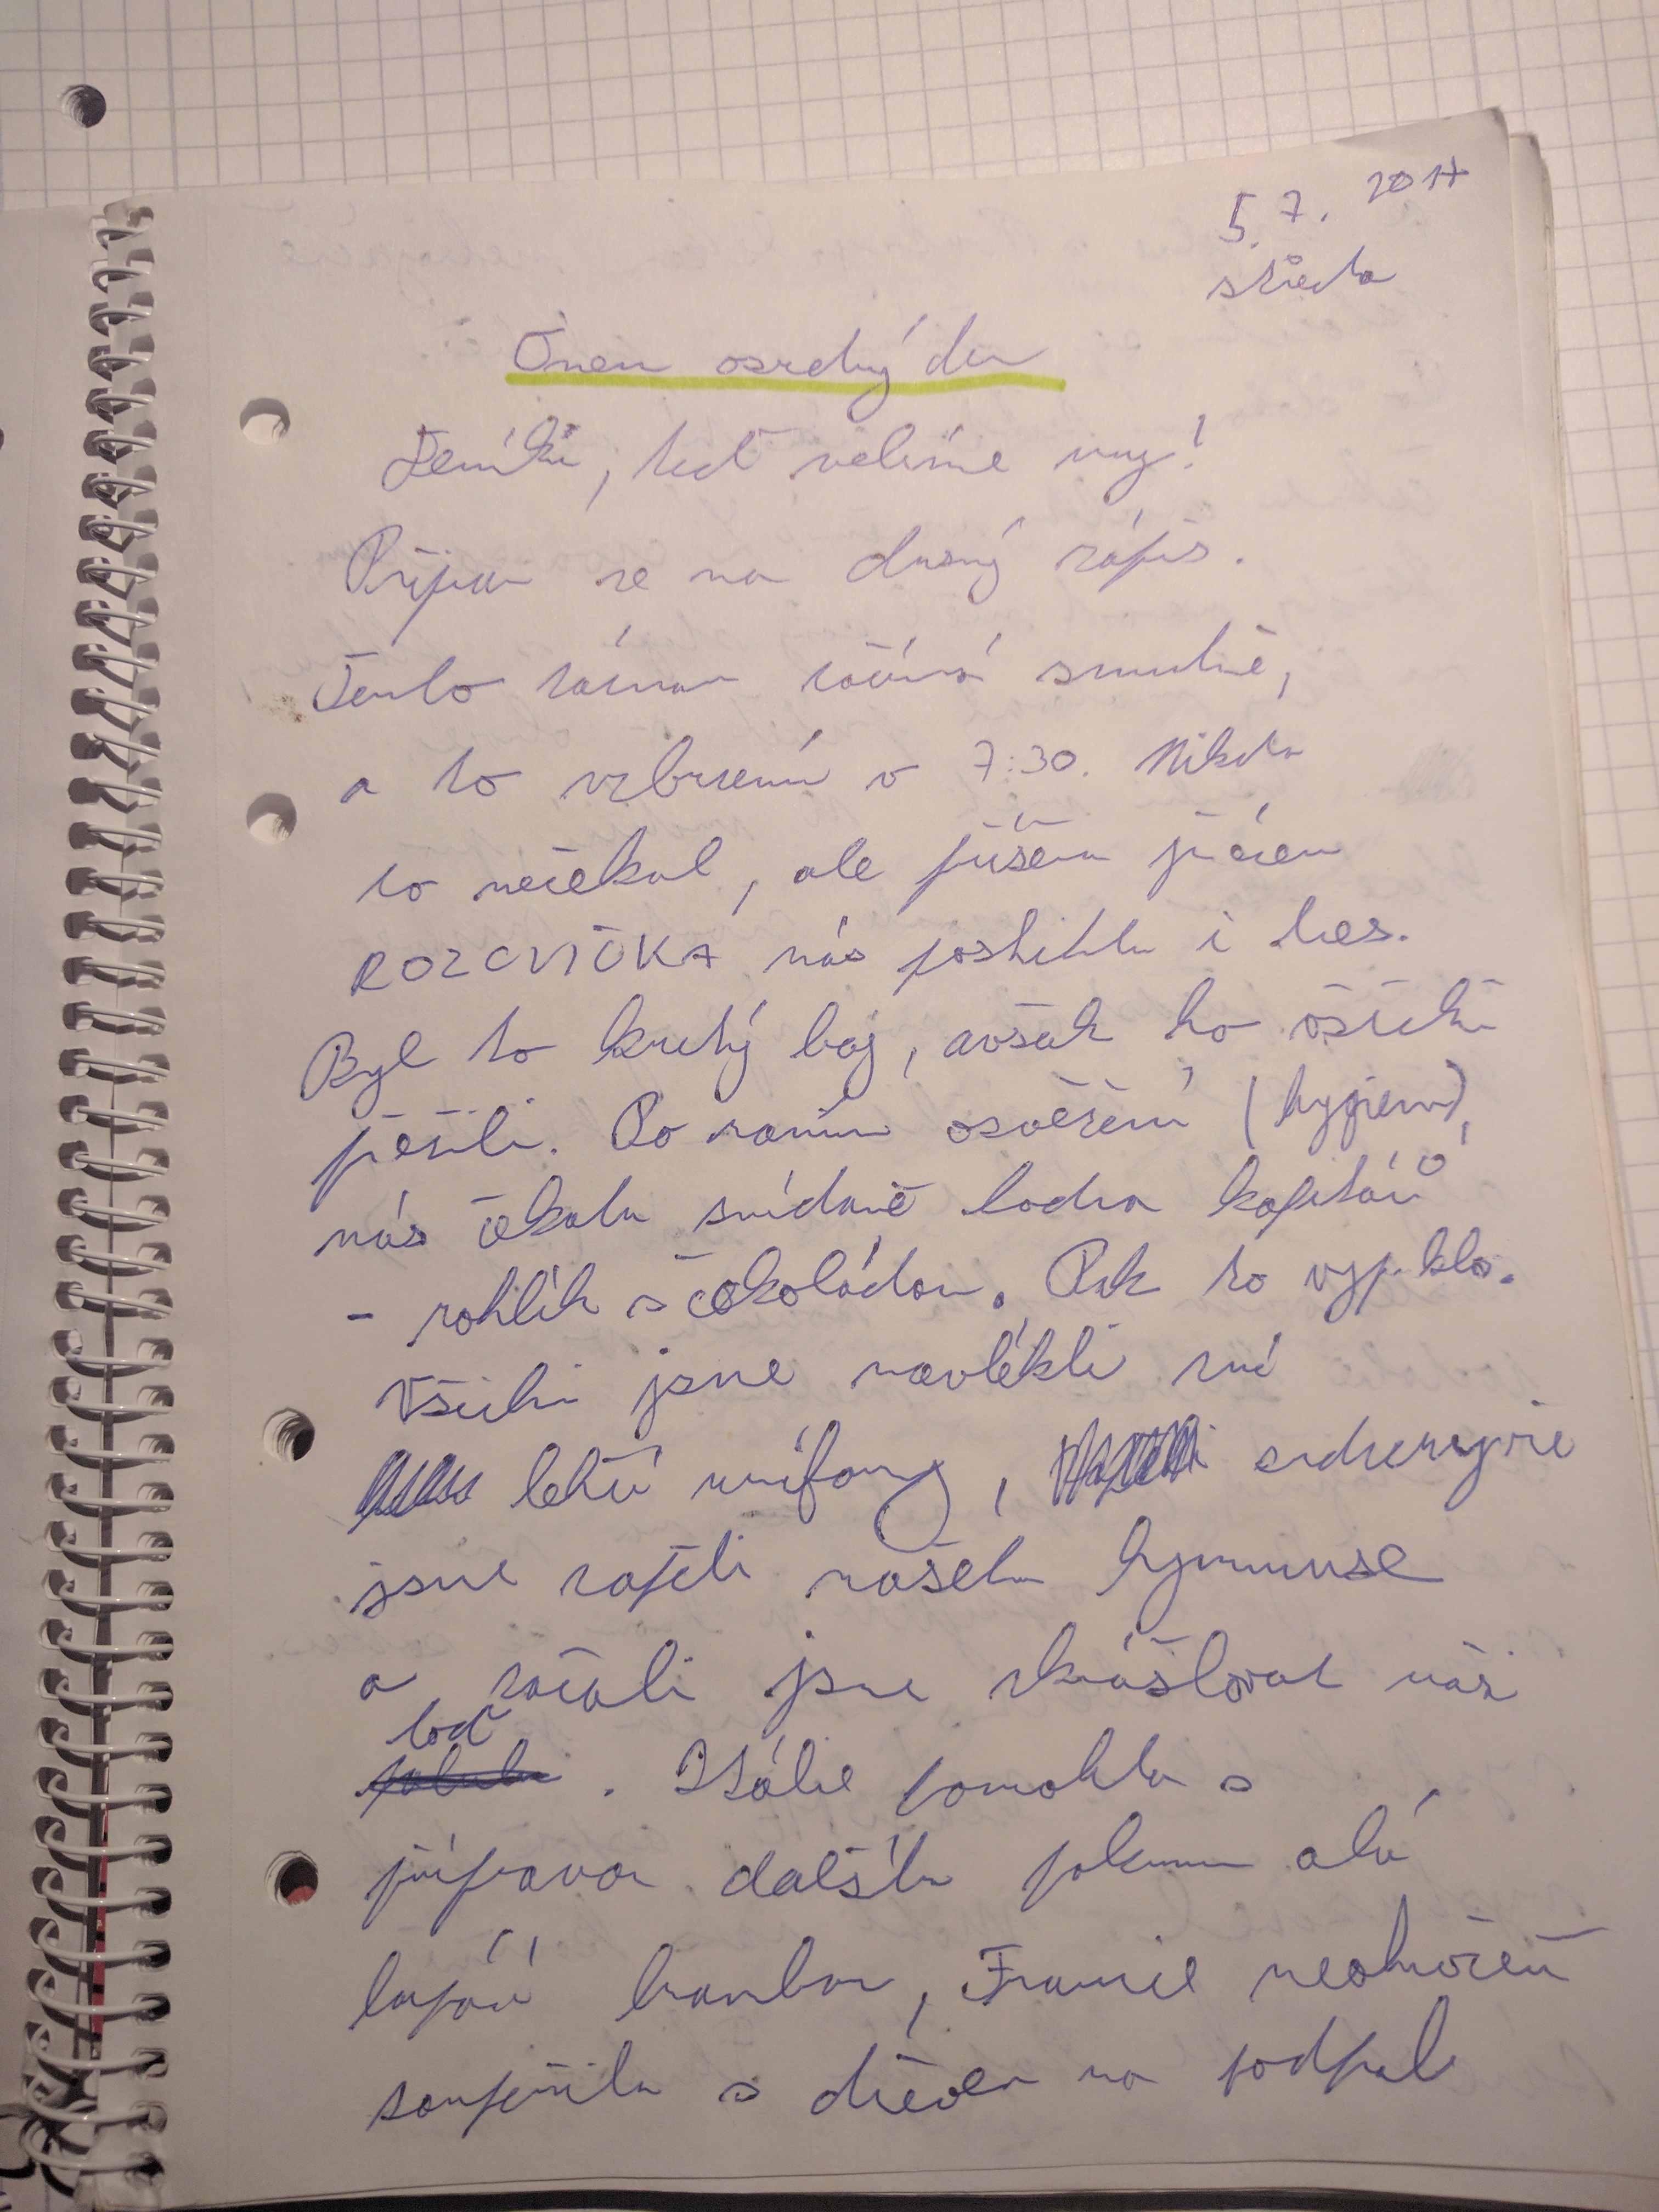 5. 7. 2017
středa
Onen osudný den
Deníčku, teď velíme my!
Připrav se na drsný zápis.
Tento záznam začíná smutně,
a to vzbuzením v 7:30. Nikdo
to nečekal, ale příšera jménem
ROZCVIČKA nás postihla i dnes.
Byl to krutý boj, avšak ho všichni
přežili. Po ranním osvěžení (hygieně),
nás čekala snídaně hodna kapitánů
- rohlík s čokoládou. Pak to vypuklo.
Všichni jsme navlékli své
letní uniformy,
jsme zapěli našeho hymnuse
a začali jsme zkrášlovat naši
loď. Itálie pomohla s
přípravou dalšího pokrmu
brambor, Francie neohroženě
soupeřila s dřevem na podpal